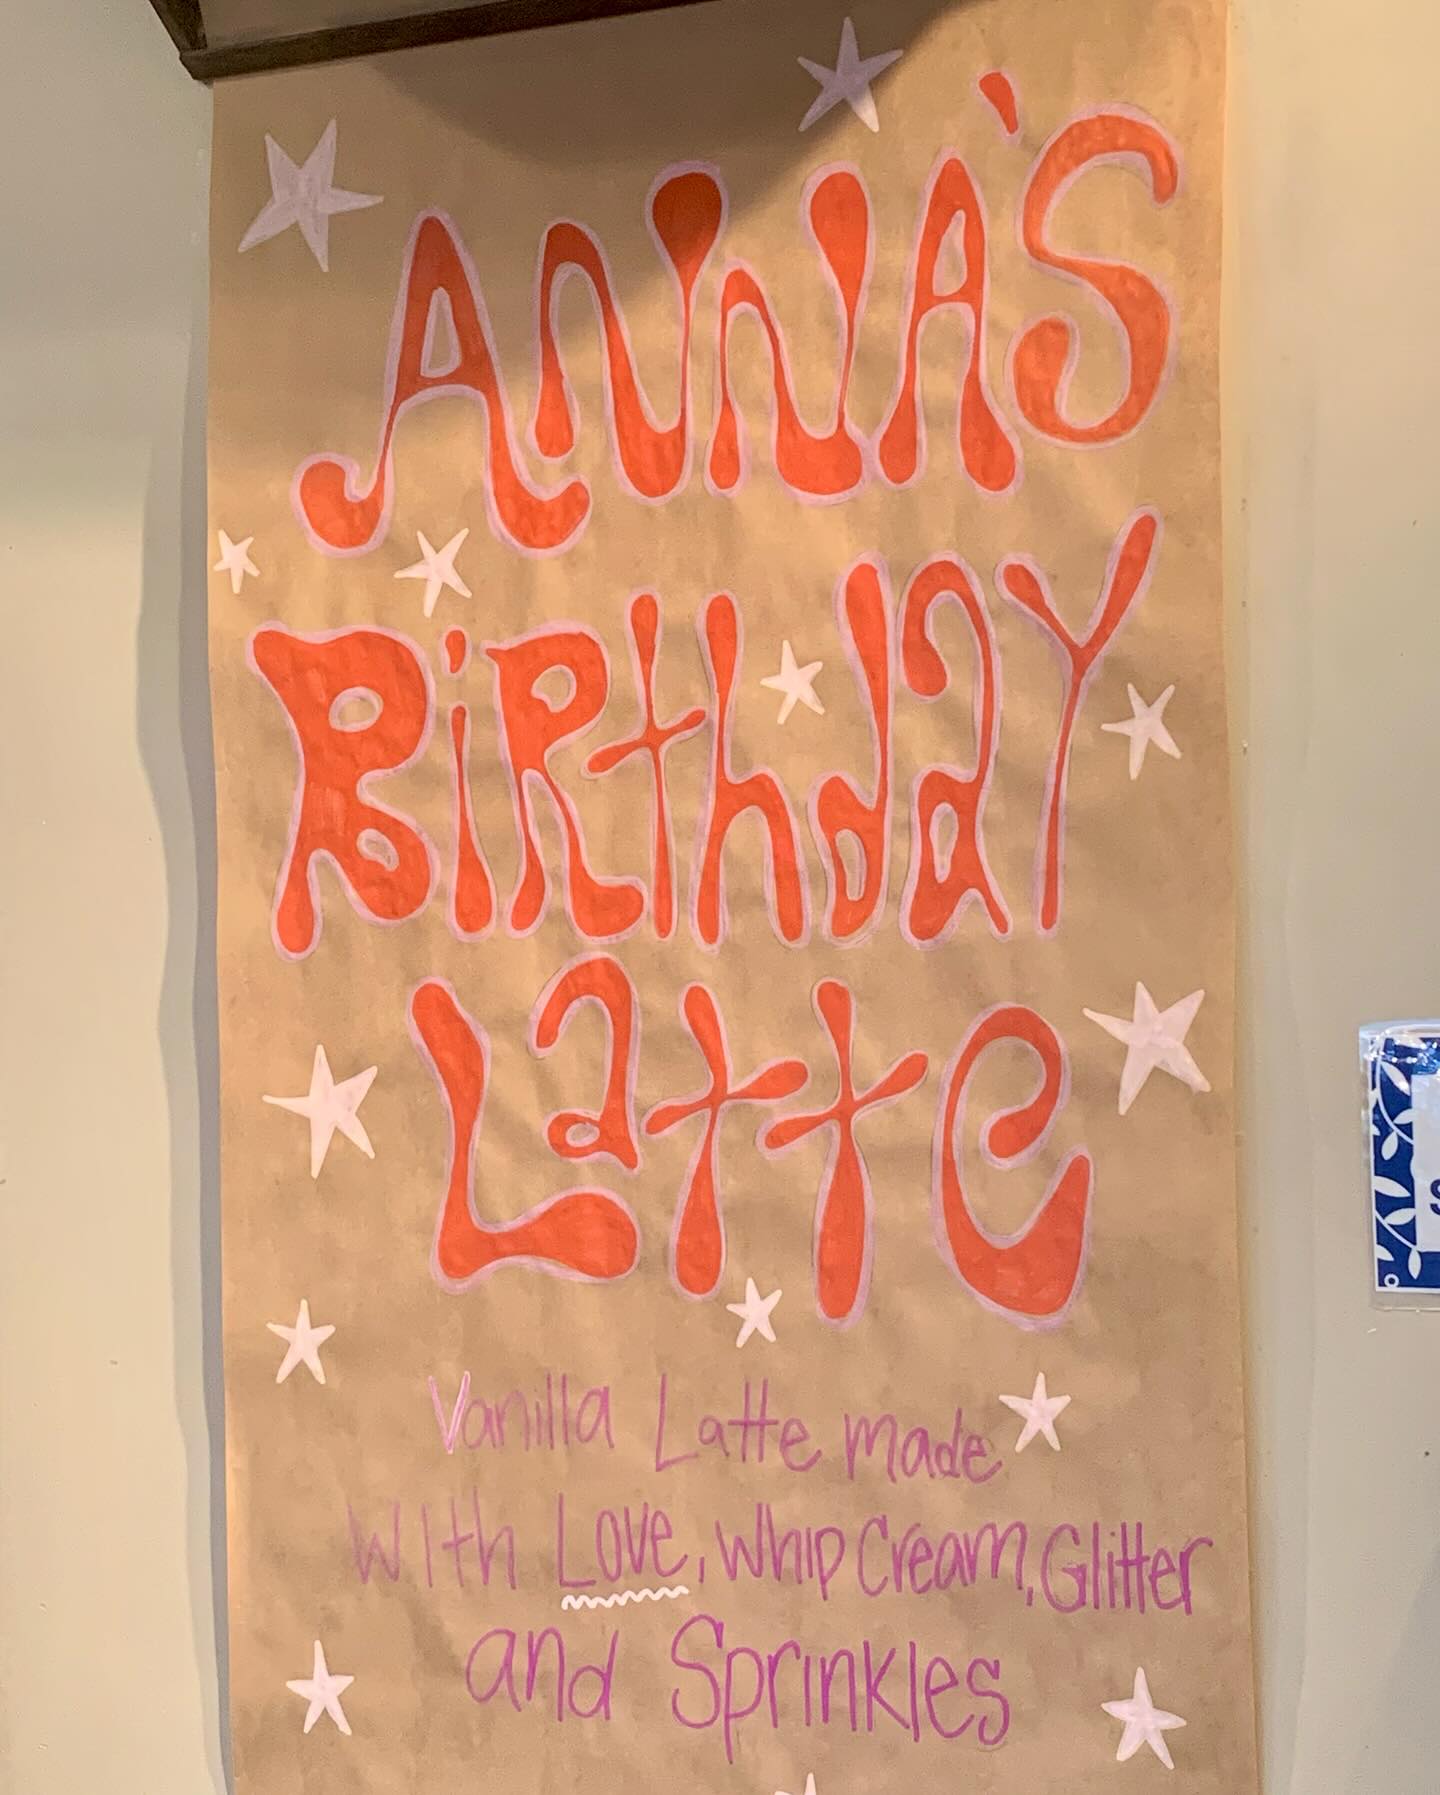 ANNA'S
BiRthdaY
Latte
Vanilla Latte made
With Love, Whip Cream, Glitter
and Sprinkles